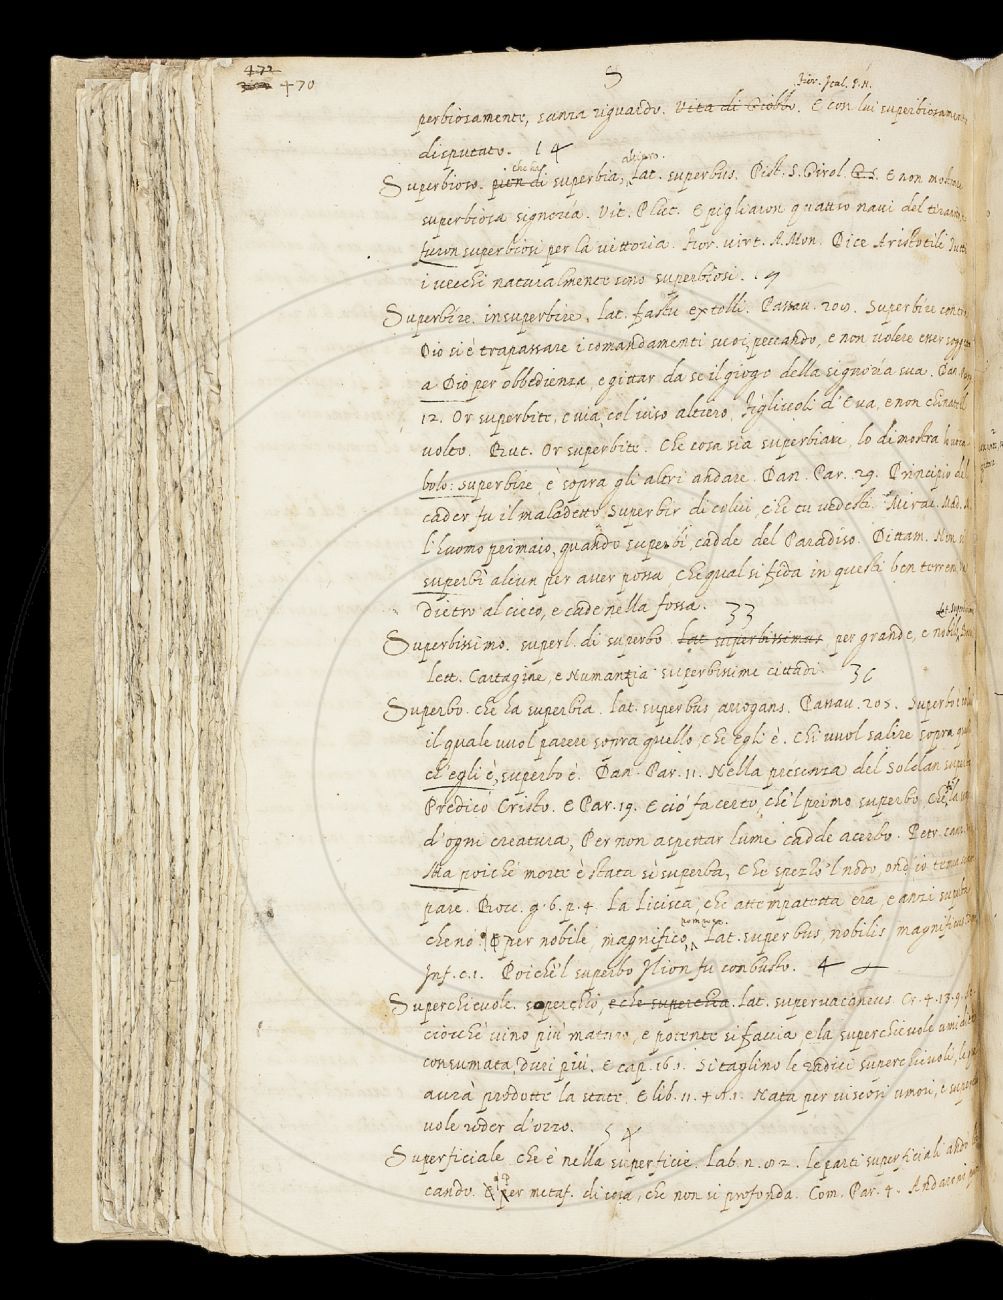 472
470
S
Fior. Ital. S. N.
perbiosamente, sanza riguardo. Vita di Giobbo. E con lui superbiosamente
disputato. 14
che ha
Superbioso. pien di superbia, Lat. superbus. Pist. S. Girol. E non mostrare
superbiosa signoria. Vit. Plut. E pigliaron quattro navi del tiranno
furon superbiosi per la vittoria. Fior. virt. A. Mon. Dice Aristotile Tutti
i vecchi naturalmente sono superbiosi. 9
Superbire. insuperbire, lat. fastu extolli. Passav. 209. Superbire contro
Dio si è trapassare i comandamenti suoi, peccando, e non volere esser soggetto
a Dio per obbedienza, e gittar da se il giogo della signoria sua. Dan. Purg.
12. Or superbite, e via, col viso altiero, figliuoli d'Eva, e non chinate il
volto. But. Or superbite. Che cosa sia superbiare, lo dimostra
bolo: superbire, è sopra gli altri andare. Dan. Par. 29. Principio del
cader fu il maladetto Superbir di colui, che tu vedesti. Mirac. Mad. M.
L'huomo primaio, quando superbì, cadde del Paradiso. Dittam. Non si
superbì alcun per aver possa Che qual si fida in questi ben terreni, Va
dietro al cieco, e cade nella fossa. 33
Superbissimo. superl. di superbo lat. superbissimus per grande, e nobile,
lett. Cartagine, e Numantia superbissime cittadi. 36
Superbo. che ha superbia. lat. superbus, arrogans. Passav. 205. Superbo è
il quale vuol parere sopra quello, che egli è. chi vuol salire sopra quello
ch'egli è, superbo è. Dan. Par. 11. Nella presenza del Soldan superba
Predicò Cristo. E Par. 19. E ciò fa certo, che'l primo superbo, Che
d'ogni creatura, Per non aspettar lume cadde acerbo. Petr. canz.
Ma poichè morte è stata sì superba, Che spezzò 'l nodo, ond'io temea
pare. Bocc. g. 6. p. 4. La Licisca, che attempatetta era, e anzi superba
pompos.
che nò. per nobile, magnifico, Lat. superbus, nobilis, magnificus Dan.
Inf. c. 1. Poichè'l superbo Ilion fu combusto. 4
Superchievole. soperchio, e che superchia. lat. supervacaneus Cr. 4. 13. 9.
ciocchè vino più maturo, e potente si faccia, e la superchievole umidità
consumata, duri più. E cap. 16. 1. Si taglino le radici superchievoli,
avrà prodotte la state. E lib. 11. 4 A. 1. Nata per viscosi umori, e superchie-
vole roder d'orzo. 54
Superficiale che è nella superficie. Lab. n. 82. Le parti superficiali andò
cando. per metaf. di cosa, che non si profonda. Com. Par. 4. Andarono